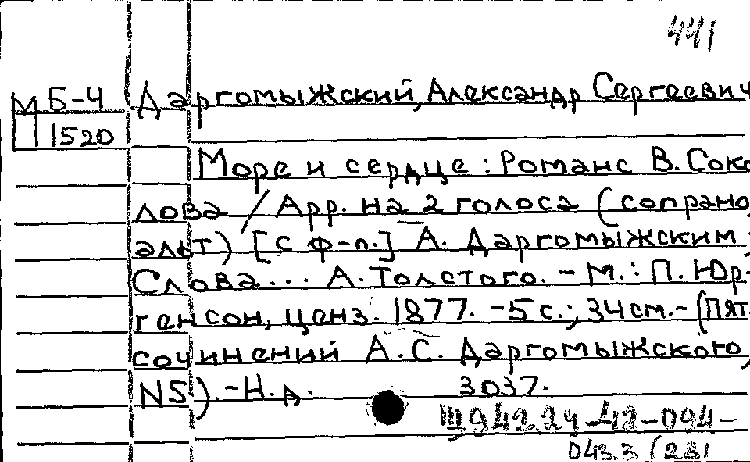 441
М Б-4 Даргомыжский, Александр Сергеевич
1520
Море и сердце : Романс В. Соко-
лова / Арр. на 2 голоса (сопрано,
альт) [с ф-п.] А. Даргомыжским ;
Слова... А. Толстого. - М.: П. Юр-
генсон, ценз. 1877. - 5 с.; 34 см. - (Пят.
сочинений А.С. Даргомыжского,
N5). - Н.д. 3037.
Щ942.24-42-094-
043.3 (281